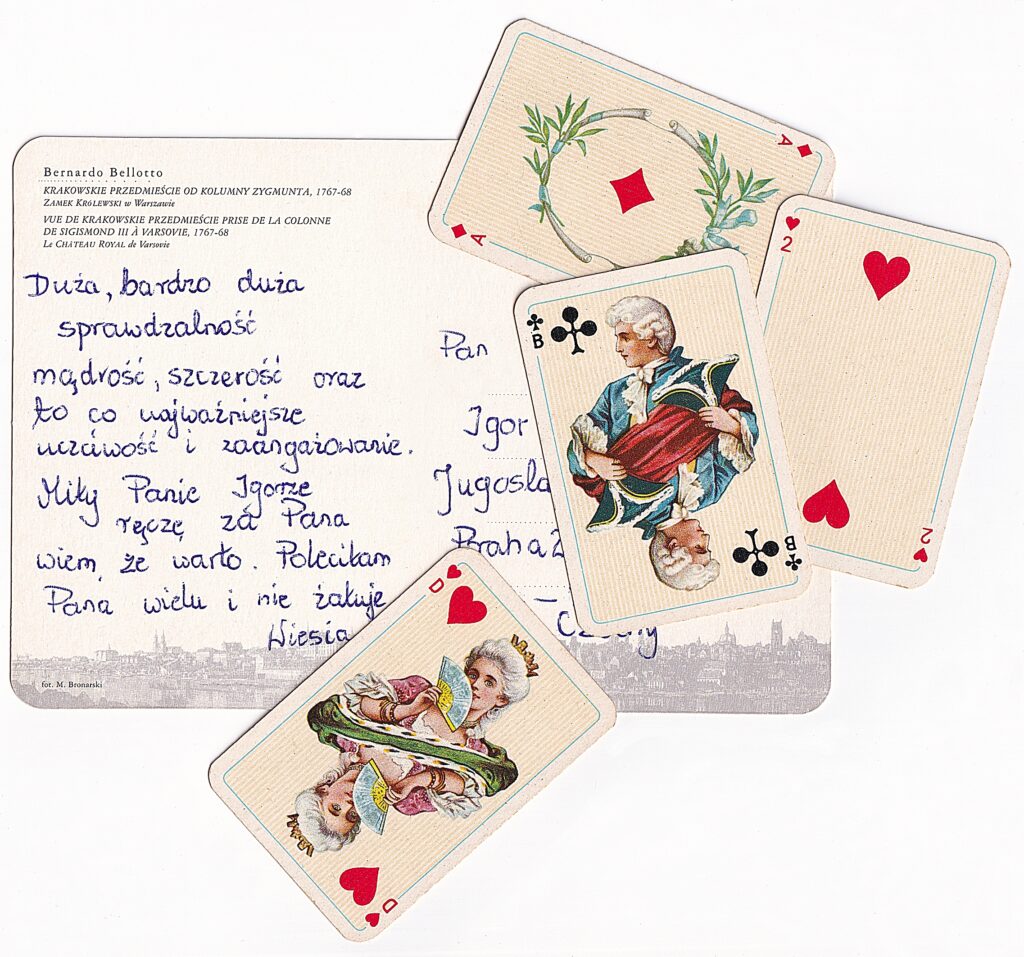 Bernardo Bellotto
KRAKOWSKIE PRZEDMIEŚCIE OD KOLUMNY ZYGMUNTA, 1767-68
ZAMEK KRÓLEWSKI w Warszawie
VUE DE KRAKOWSKIE PRZEDMIEŚCIE PRISE DE LA COLONNE
DE SIGISMOND III À VARSOVIE, 1767-68
Le CHÂTEAU ROYAL de Varsovie
Duża, bardzo duża
sprawdzalność
mądrość, szczerość oraz
to co najważniejsze
uczciwość i zaangażowanie.
Miły Panie Igorze
ręczę za Pana
wiem, że warto. Poleciłam
Pana wielu i nie żałuję
Wiesia
fot. M. Bronarski
Pan
Igor
Jugosla
Praha 2
A
A
2
2
B
B
D
D